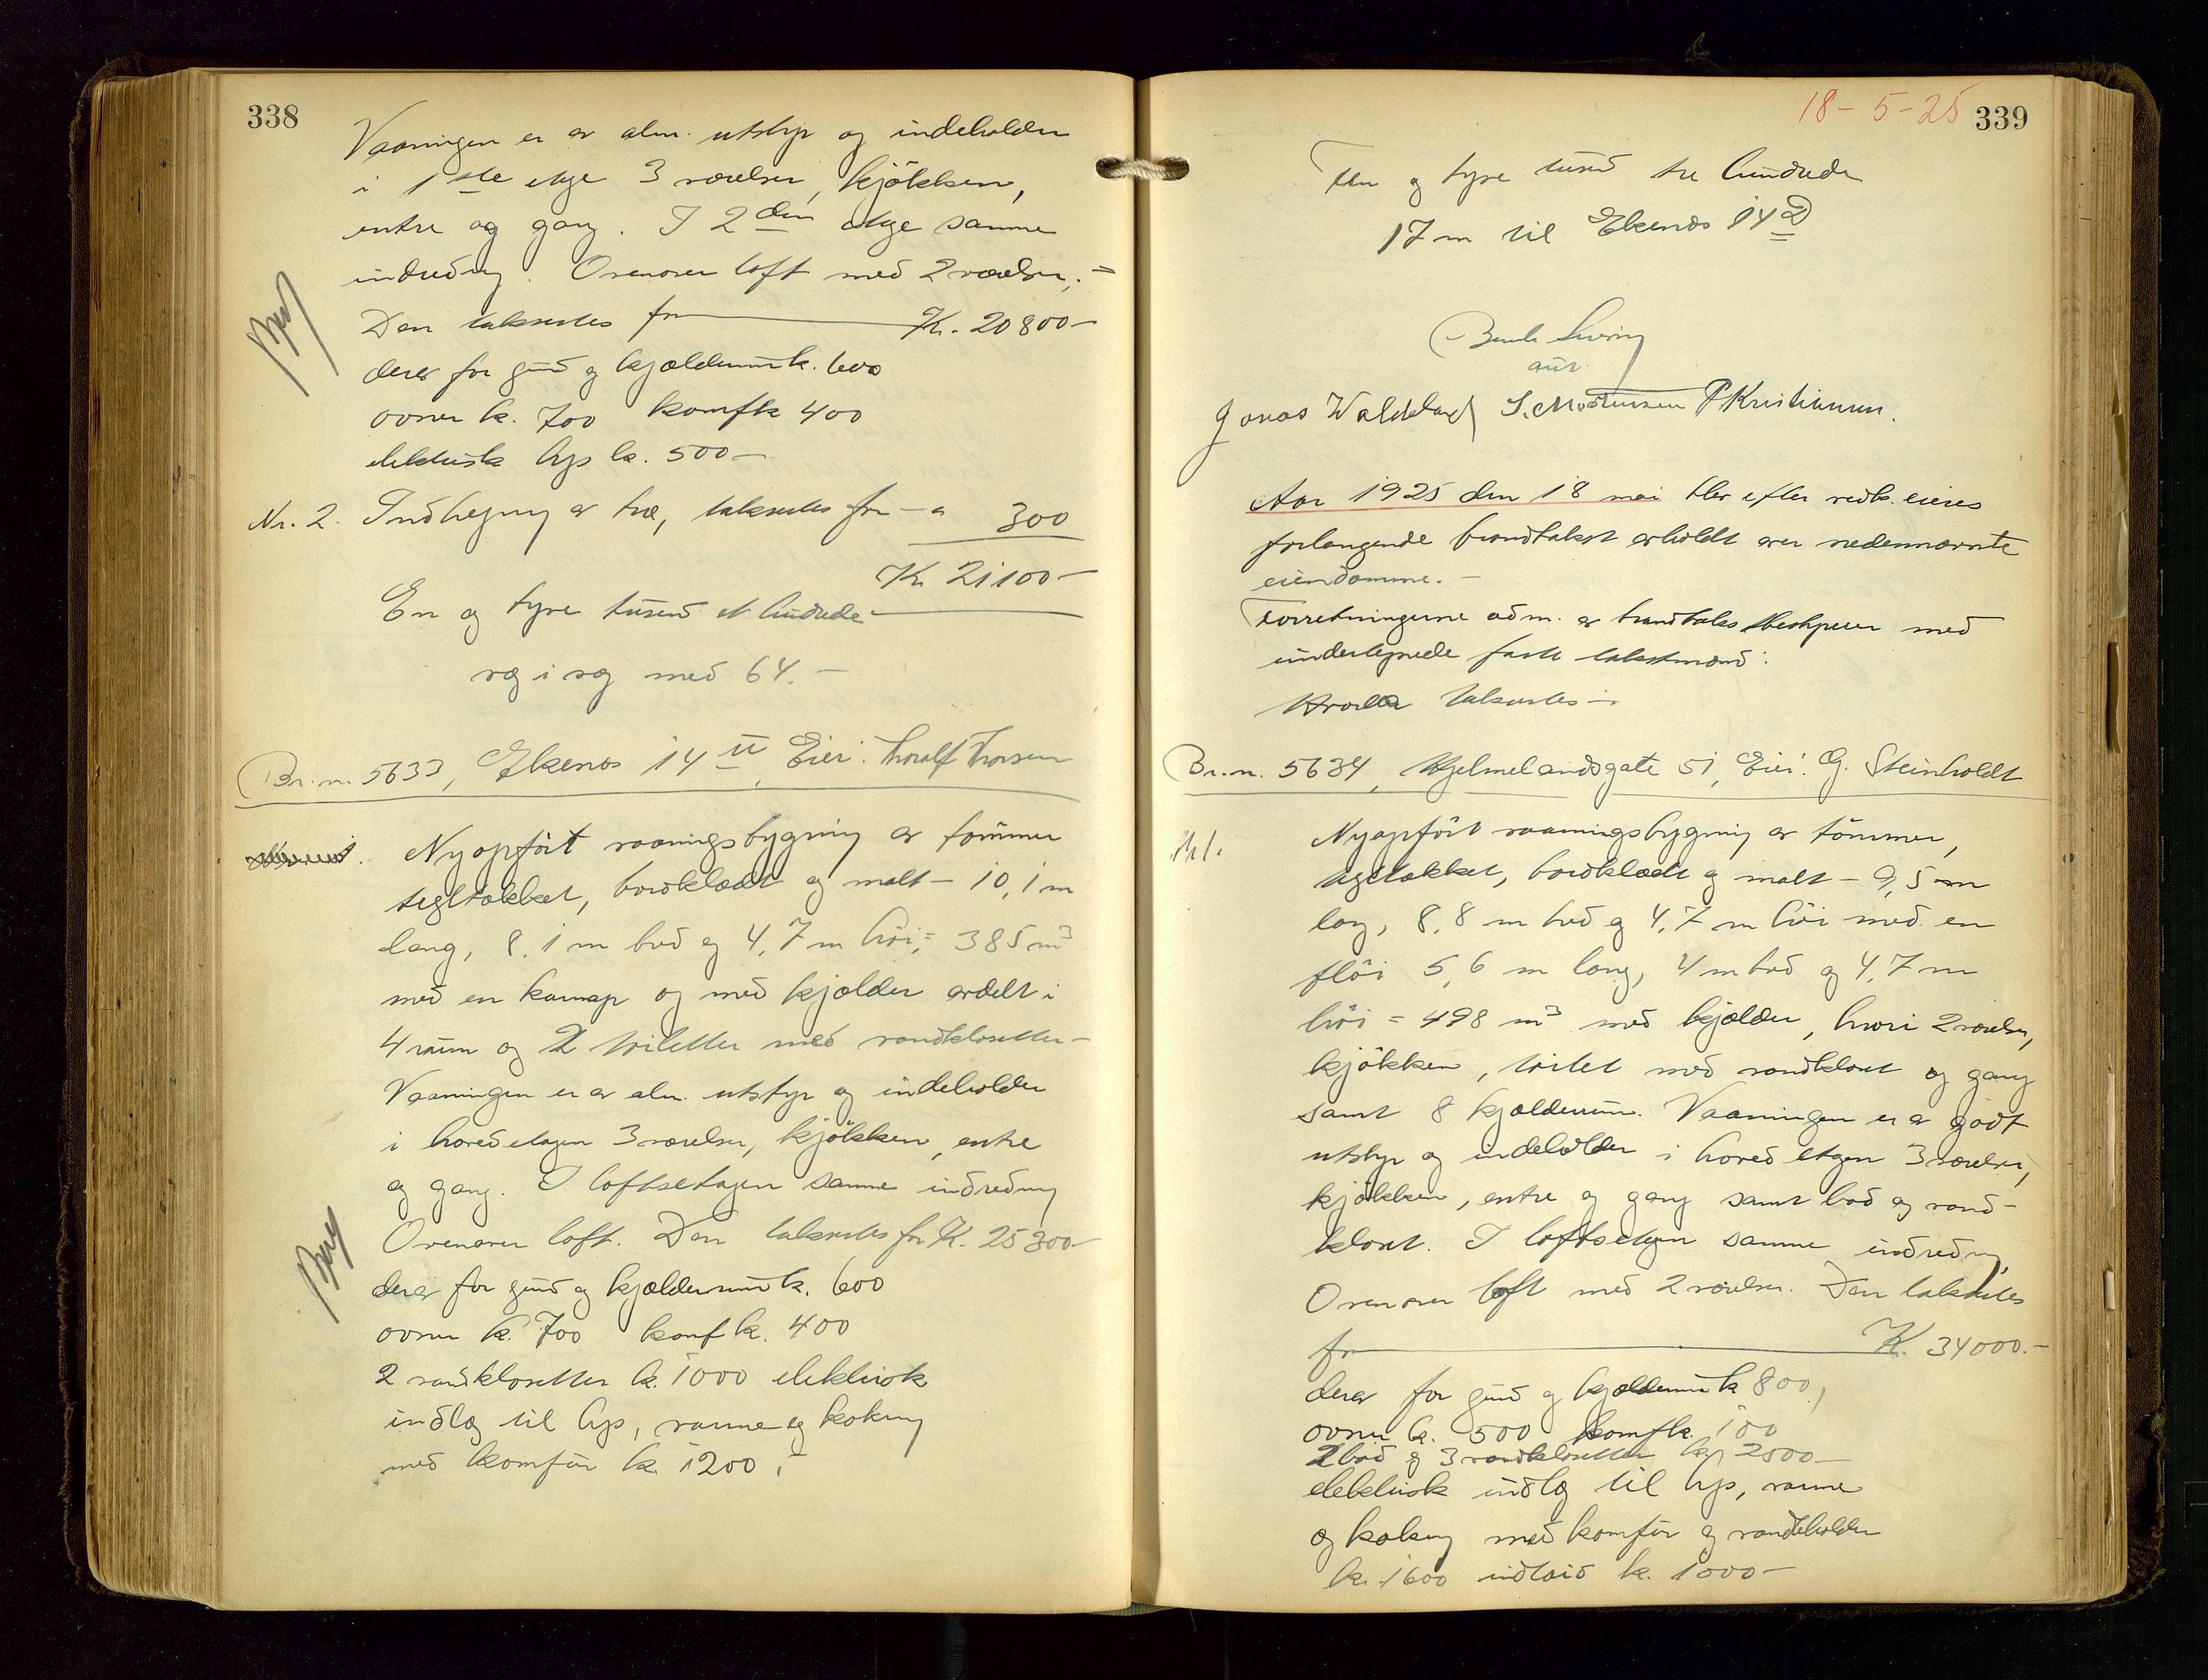 338
Vaaningen er av alm. utstyr og indeholder
i 1ste etage 3 værelser, kjökken,
entre og gang. I 2den etage samme
indredning. Ovenover loft med 2 værelser.-
Den takseres for Kr. 20800-
derav for grund og kjælderrum k. 600
ovner k. 700 komf k 400
elektrisk lys k. 500-
Nr. 2. Indhegning av træ, takseres for - " 300
Kr 21100-
En og tyve tusend et hundrede
væg i væg med 64.-
Br.nr. 5633, Ekenes 14 II, Eier: Thoralf Thorsen
Nyopfört vaaningsbygning av tömmer
tegltækket, bordklædt og malt - 10,1 m
lang, 8,1 m bred og 4,7 m höi = 385 m3
med en karnap og med kjælder avdelt i
4 rum og 2 toiletter med vandklosetter-
Vaaningen er av alm. utstyr og indeholder
i hovedetagen 3 værelser, kjökken, entre
og gang. I loftsetagen samme indredning
Ovenover loft. Den takseres for K. 25300-
derav for grund og kjælderrum k. 600
ovner k. 700 komf k. 400
2 vandklosetter k. 1000 elektrisk
indlæg til lys, varme og kokning
med komfür k. 1200,-
18-5-25 339
Fem og tyve tusend tre hundrede
17 m til Ekenes 14 D
aut.
Jonas Waldeland S. Mortensen P Kristiansen.
Aar 1925 den 18 mai blev efter vedk. eieres
forlangende brandtakst avholdt over nedennævnte
eiendomme.-
Forretningerne adm. av brandtakstbestyrer med
undertegnede faste takstmænd:
Hvorda takseres:-
Br.nr. 5634, Hjelmelandsgate 51, Eier: G. Steinholdt
Nr 1. Nyopfört vaaningsbygning av tömmer,
tegltækket, bordklædt og malt - 9,5 m
lang, 8,8 m bred og 4,7 m höi med en
flöi 5,6 m lang, 4 m bred og 4,7 m
höi = 498 m3 med kjælder, hvori 2 værelser,
kjökken, toilet med vandkloset og gang
samt 8 kjælderrum. Vaaningen er av godt
utstyr og indeholder i hovedetagen 3 værelser,
kjökken, entre og gang samt bad og vand-
kloset. I loftsetagen samme indredning
Ovenover loft med 2 værelser. Den takseres
for K. 34000.-
derav for grund og kjælderrum k 800,
ovner k. 500 komf k. 100
2 bad og 3 vandklosetter kr 2500-
elektrisk indlæg til lys, varme
og kokning med komfür og vandbeholder
k. 1600 indbaid k. 1000-